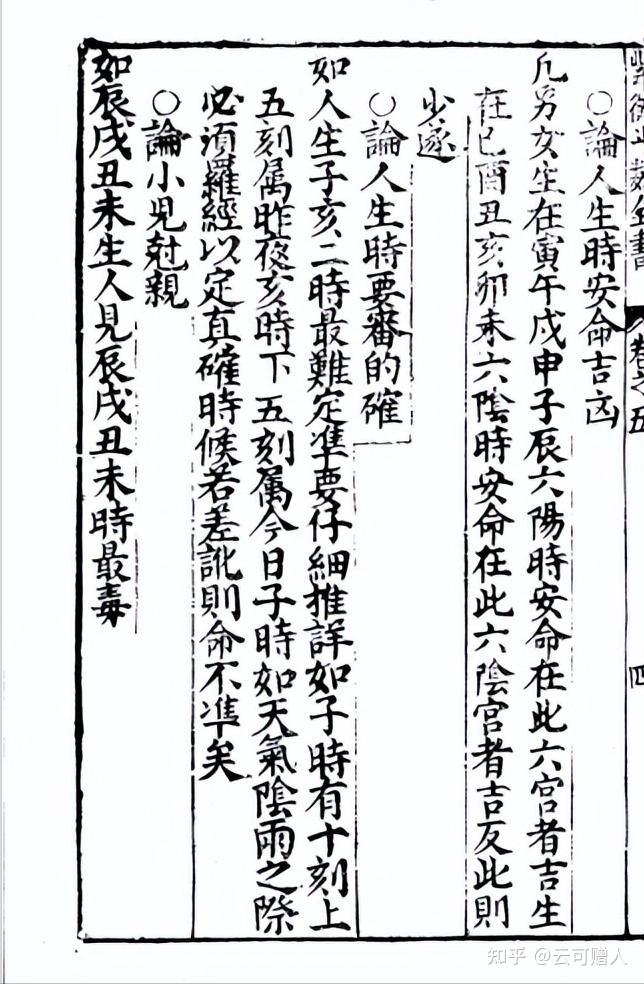 紫微斗數全書 卷之五 四
○論人生時安命吉凶
凡男女生在寅午戌申子辰六陽時安命在此六宮者吉生
在巳酉丑亥卯未六陰時安命在此六陰宮者吉反此則
少遂
○論人生時要審的確
如人生子亥二時最難定凖要仔細推詳如子時有十刻上
五刻属昨夜亥時下五刻属今日子時如天氣陰雨之際
必須羅經以定真確時候若差訛則命不凖矣
○論小児尅親
如辰戌丑未生人見辰戌丑未時最毒
知乎 @云可赠人